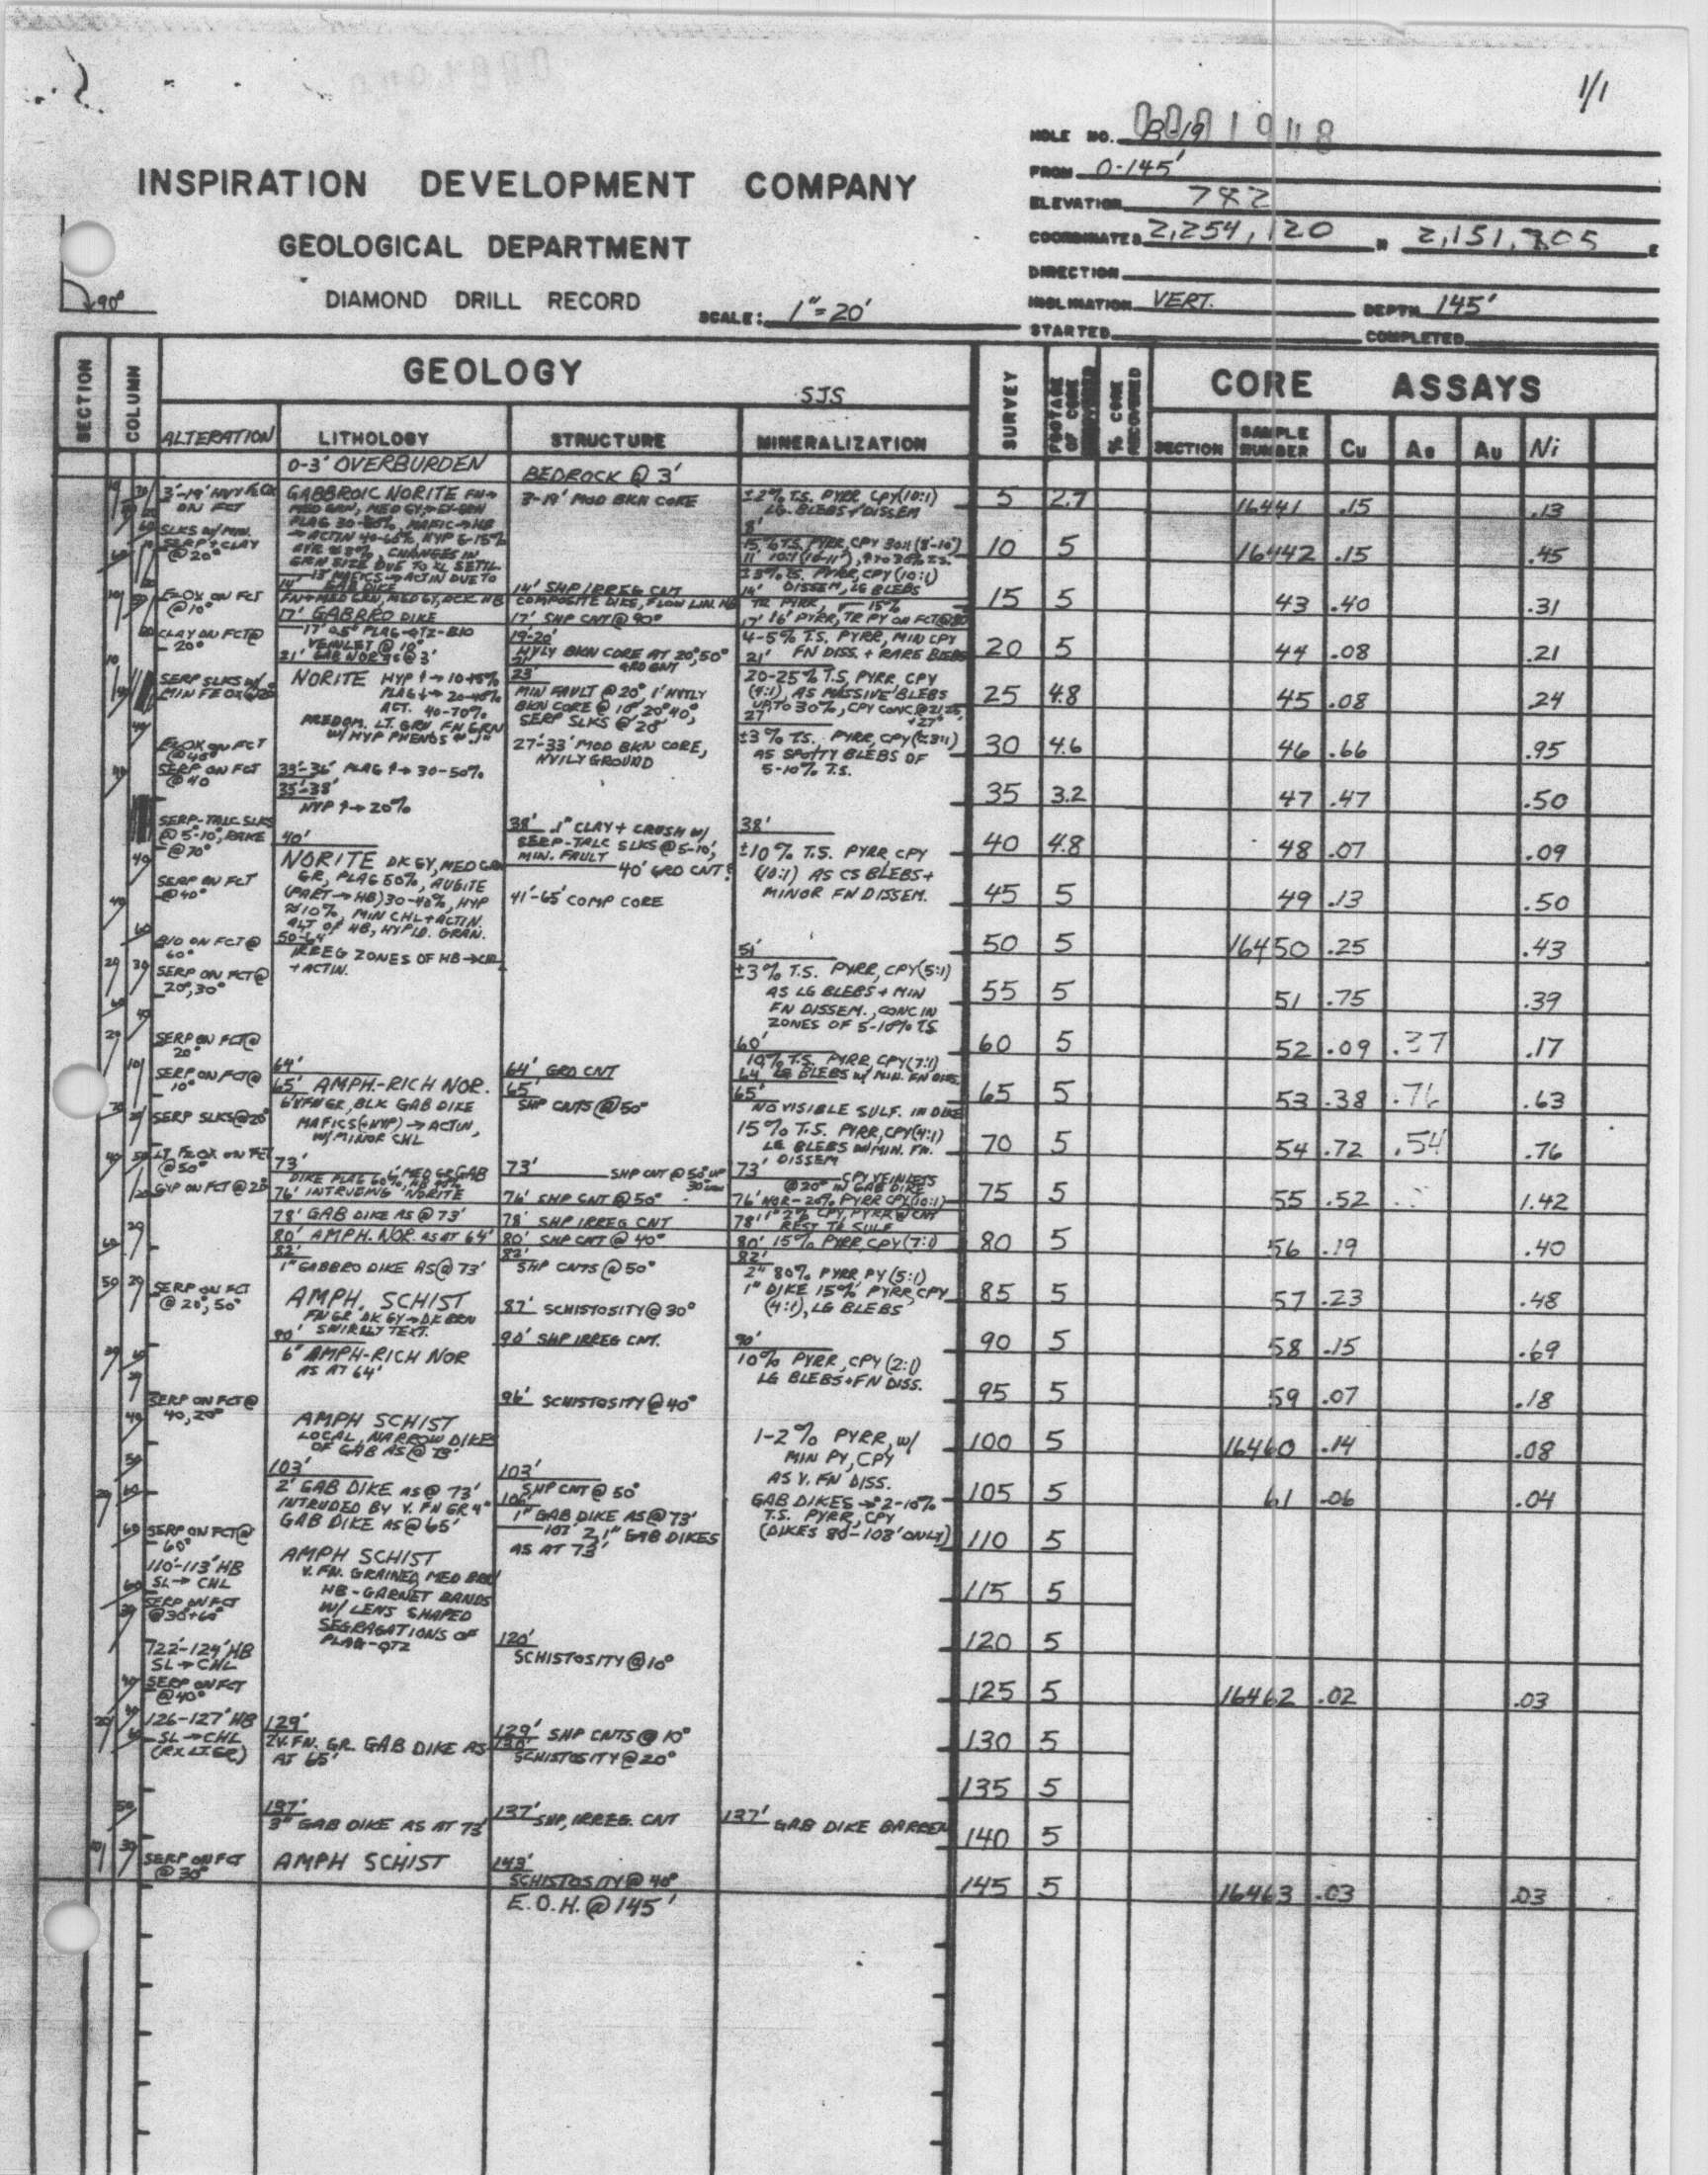 1/1
HOLE NO. B-19
0001948
FROM 0-145'
INSPIRATION DEVELOPMENT COMPANY
ELEVATION 782
GEOLOGICAL DEPARTMENT
COORDINATES 2,254,120 N 2,151,805 E
DIRECTION
90°
DIAMOND DRILL RECORD
SCALE: 1"=20'
INCLINATION VERT. DEPTH 145'
STARTED COMPLETED
SECTION
COLUMN
GEOLOGY
SJS
SURVEY
FOOTAGE OF CORE
% CORE RECOVERED
CORE ASSAYS
ALTERATION LITHOLOGY STRUCTURE MINERALIZATION
SECTION SAMPLE NUMBER Cu Au Ni
ALTERATION
3'-19' HVY FEOX
ON FCT
SLKS W/ MIN.
SERP + CLAY
@ 20°
FEOX ON FCT
@ 10°
CLAY ON FCT @
20°
SERP SLKS W/
MIN FEOX @ 20°
FEOX ON FCT
@ 40°
SERP ON FCT
@ 40
SERP-TALC SLKS
@ 5-10°, RAKE
@ 70°
SERP ON FCT
@ 40°
BIO ON FCT @
60°
SERP ON FCT @
20°, 30°
SERP ON FCT @
20°
SERP ON FCT @
10°
SERP SLKS @ 20°
LT FEOX ON FCT
@ 50°
GYP ON FCT @ 20°
SERP ON FCT
@ 20°, 50°
SERP ON FCT @
40, 20°
SERP ON FCT @
60°
110'-113' HB
SL → CHL
SERP ON FCT
@ 30 + 60°
122'-124' HB
SL → CHL
SERP ON FCT
@ 40°
126-127' HB
SL → CHL
(RX LT GR)
SERP ON FCT
@ 30°
LITHOLOGY
0-3' OVERBURDEN
GABBROIC NORITE FN→
MED GRN, MED GY,
ACTIN 40-65%, HYP 5-15%
CHANGES IN
GRN SIZE DUE TO XL SETTL.
13' MAFICS → ACTIN DUE TO
14' GAB DIKE
FN→MED GRN, MED GY,
17' GABBRO DIKE
17' 0.5" PLAG-QTZ-BIO
VEINLET @ 10°
NORITE HYP ↑→ 10-15%
PLAG ↓→ 20-40%
ACT. 40-70%
PREDOM. LT. GRN FN GRN
W/ HYP PHENOS
33'-36' PLAG ↑→ 30-50%
35'-38'
HYP ↑→ 20%
40'
NORITE DK GY, MED GR
GR, PLAG 50%, AUGITE
(PART → HB) 30-40%, HYP
≈10%, MIN CHL + ACTIN.
ALT OF HB, HYPID. GRAN.
50-64'
IRREG ZONES OF HB → CHL
+ ACTIN.
64'
65' AMPH.-RICH NOR.
6" VFN GR, BLK GAB DIKE
MAFICS (+HYP) → ACTIN,
W/ MINOR CHL
73'
6' MED GR GAB
DIKE PLAG 60%,
76' INTRUDING NORITE
78' GAB DIKE AS @ 73'
80' AMPH. NOR. AS AT 64'
82'
1" GABBRO DIKE AS @ 73'
AMPH. SCHIST
FN GR DK GY → DK BRN
SWIRLY TEXT.
90'
6" AMPH-RICH NOR
AS AT 64'
AMPH SCHIST
LOCAL, NARROW DIKES
OF GAB AS @ 73'
103'
2' GAB DIKE AS @ 73'
INTRUDED BY V. FN GR 4"
GAB DIKE AS @ 65'
AMPH SCHIST
V. FN. GRAINED, MED BRN
HB-GARNET BANDS
W/ LENS SHAPED
SEGRAGATIONS OF
PLAG-QTZ
129'
2' V. FN. GR. GAB DIKE AS
AT 65'
137'
3" GAB DIKE AS AT 73'
AMPH SCHIST
STRUCTURE
BEDROCK @ 3'
3-19' MOD BKN CORE
14' SHP IRREG CNT
COMPOSITE DIKE, FLOW LIN. HB
17' SHP CNT @ 90°
19-20'
HVLY BKN CORE AT 20°, 50°
21' GRD CNT
23'
MIN FAULT @ 20° 1' HVLY
BKN CORE @ 10° 20° 40°,
SERP SLKS @ 20°
27'-33' MOD BKN CORE,
HVILY GROUND
38' .1" CLAY + CRUSH W/
SERP-TALC SLKS @ 5-10°,
MIN. FAULT
40' GRD CNT?
41'-65' COMP CORE
64' GRD CNT
65'
SHP CNTS @ 50°
73' SHP CNT @ 50° UP
76' SHP CNT @ 50°
78' SHP IRREG CNT
80' SHP CNT @ 40°
82'
SHP CNTS @ 50°
87' SCHISTOSITY @ 30°
90' SHP IRREG CNT.
96' SCHISTOSITY @ 40°
103'
SHP CNT @ 50°
106'
1" GAB DIKE AS @ 73'
107' 2, 1" GAB DIKES
AS AT 73'
120'
SCHISTOSITY @ 10°
129' SHP CNTS @ 10°
130'
SCHISTOSITY @ 20°
137' SHP, IRREG. CNT
143'
SCHISTOSITY @ 40°
E.O.H. @ 145'
MINERALIZATION
±2% T.S. PYRR, CPY (10:1)
LG. BLEBS + DISSEM
8'
15% T.S. PYRR, CPY 30:1 (8'-10')
±3% T.S. PYRR, CPY (10:1)
14' DISSEM, LG BLEBS
17' 16' PYRR, TR PY ON FCT @
4-5% T.S. PYRR, MIN CPY
21' FN DISS. + RARE BLEBS
20-25% T.S. PYRR CPY
(4:1), AS MASSIVE BLEBS
UP TO 30%, CPY CONC @
27'
±3% T.S. PYRR, CPY
AS SPOTTY BLEBS OF
5-10% T.S.
38'
±10% T.S. PYRR, CPY
(10:1) AS CS BLEBS +
MINOR FN DISSEM.
51'
±3% T.S. PYRR, CPY (5:1)
AS LG BLEBS + MIN
FN DISSEM., CONC IN
ZONES OF 5-10% T.S
60'
10% T.S. PYRR, CPY (7:1)
64' LG BLEBS W/ MIN. FN DISS.
65'
NO VISIBLE SULF. IN DIKE
15% T.S. PYRR, CPY (4:1)
LG BLEBS W/ MIN. FN.
DISSEM
73' CPY VEINLETS
@ 20° IN GAB DIKE
76' NOR-20% PYRR CPY (10:1)
78' 1" 2% CPY, PYRR @ CNT
REST TR SULF
80' 15% PYRR, CPY (7:1)
82'
2" 80% PYRR, PY (5:1)
1" DIKE 15% PYRR, CPY
(4:1), LG BLEBS
90'
10% PYRR, CPY (2:1)
LG BLEBS + FN DISS.
1-2% PYRR, W/
MIN PY, CPY
AS V. FN DISS.
GAB DIKES → 2-10%
T.S. PYRR, CPY
(DIKES 80'-108' ONLY)
137' GAB DIKE BARREN
5 2.7 16441 .15 .13
10 5 16442 .15 .45
15 5 43 .40 .31
20 5 44 .08 .21
25 4.8 45 .08 .24
30 4.6 46 .66 .95
35 3.2 47 .47 .50
40 4.8 48 .07 .09
45 5 49 .13 .50
50 5 16450 .25 .43
55 5 51 .75 .39
60 5 52 .09 .37 .17
65 5 53 .38 .63
70 5 54 .72 .54 .76
75 5 55 .52 1.42
80 5 56 .19 .40
85 5 57 .23 .48
90 5 58 .15 .69
95 5 59 .07 .18
100 5 16460 .14 .08
105 5 61 .06 .04
110 5
115 5
120 5
125 5 16462 .02 .03
130 5
135 5
140 5
145 5 16463 .03 .03